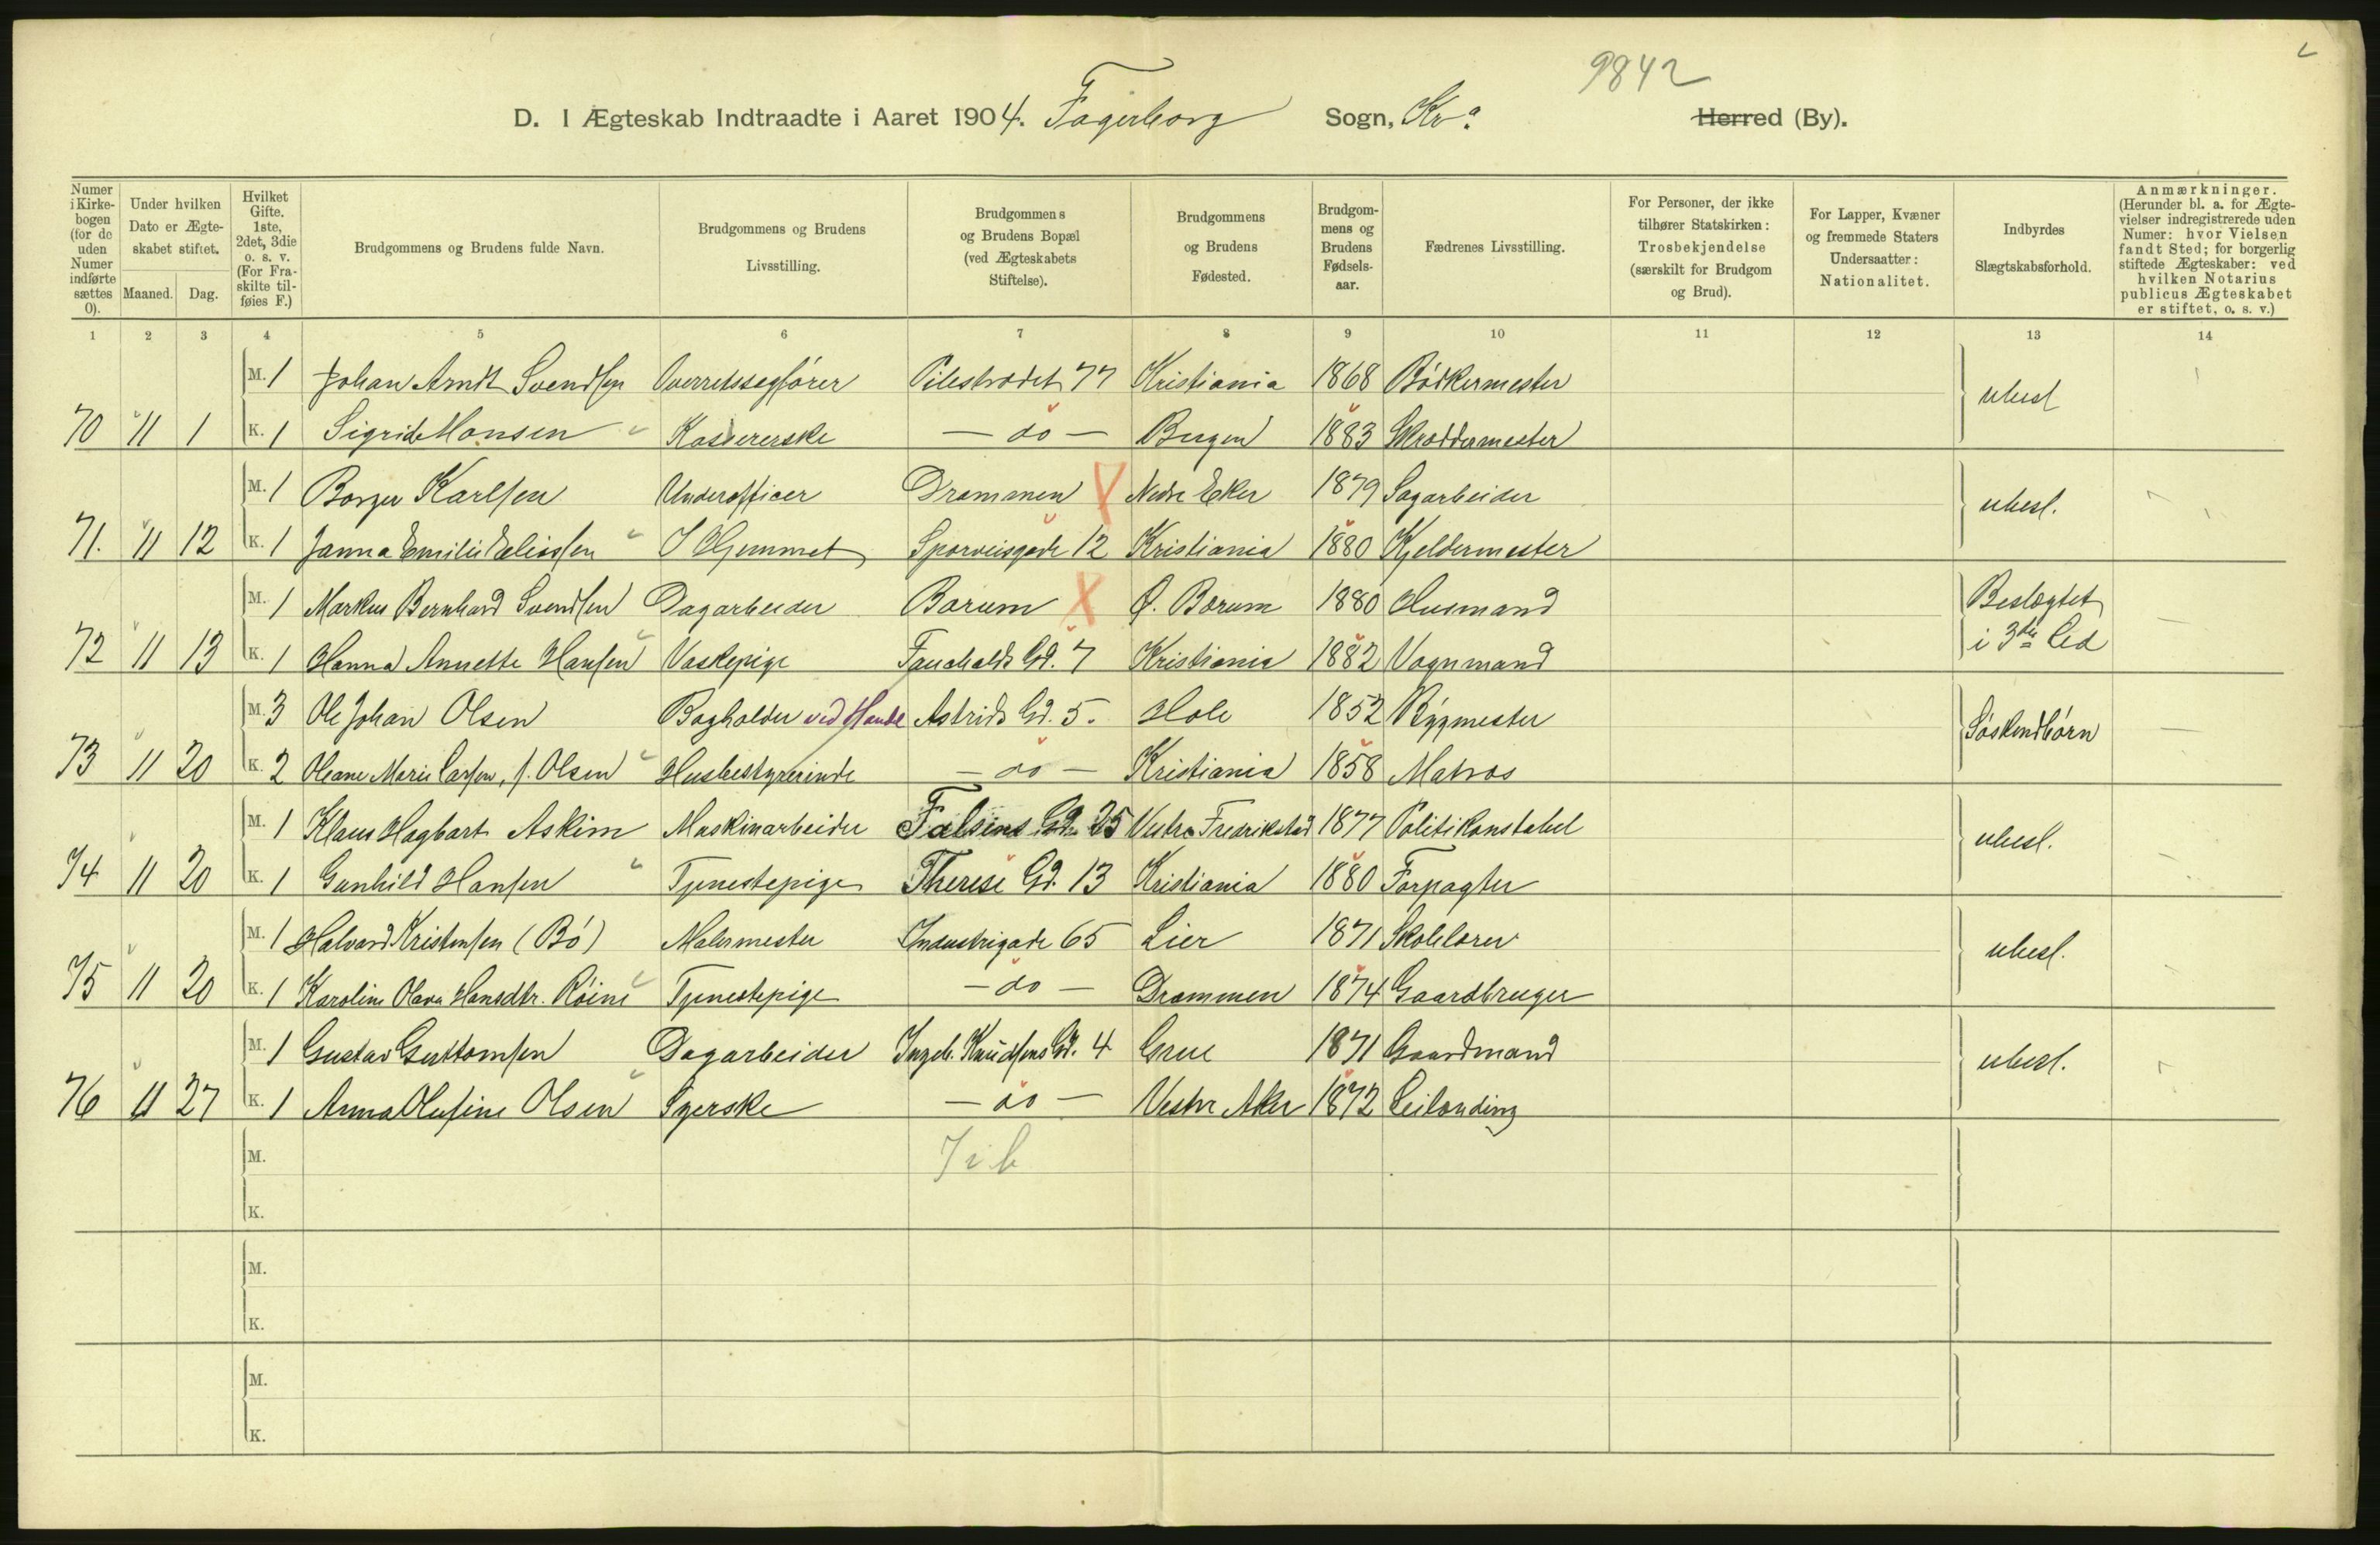 9842
D. I Ægteskab Indtraadte i Aaret 1904. Fagerborg Sogn, Kra Herred (By).
Numer i Kirkebogen (for de uden Numer indførte sættes 0).
Under hvilken Dato er Ægteskabet stiftet. Maaned. Dag.
Hvilket Gifte. 1ste, 2det, 3die o. s. v. (For Fraskilte tilføies F.)
Brudgommens og Brudens fulde Navn.
Brudgommens og Brudens Livsstilling.
Brudgommens og Brudens Bopæl (ved Ægteskabets Stiftelse).
Brudgommens og Brudens Fødested.
Brudgommens og Brudens Fødselsaar.
Fædrenes Livsstilling.
For Personer, der ikke tilhører Statskirken: Trosbekjendelse (særskilt for Brudgom og Brud).
For Lapper, Kvæner og fremmede Staters Undersaatter: Nationalitet.
Indbyrdes Slægtskabsforhold.
Anmærkninger. (Herunder bl. a. for Ægtevielser indregistrerede uden Numer: hvor Vielsen fandt Sted; for borgerlig stiftede Ægteskaber: ved hvilken Notarius publicus Ægteskabet er stiftet, o. s. v.)
1 2 3 4 5 6 7 8 9 10 11 12 13 14
M. 1 Johan Arndt Svendsen Overretssagfører Pilestrædet 77 Kristiania 1868 Bødkermester
70 11 1 K. 1 Sigrid Monsen Kassererske — do — Bergen 1883 Skræddermester ubesl
M. 1 Borger Karlsen Underofficer Drammen X Nedre Eker 1879 Sagarbeider
71. 11 12 K. 1 Janna Emilie Eliassen I Hjemmet Sporveisgade 12 Kristiania 1880 Kjeldermester ubesl.
M. 1 Markus Bernhard Svendsen Dagarbeider Bærum X Ø. Bærum 1880 Husmand Beslægtet
72 11 13 K. 1 Hanna Annette Hansen Vaskepige Fauchalds Gd. 7 Kristiania 1882 Vognmand i 3die Led
M. 3 Ole Johan Olsen Bogholder ved Handel Astrids Gd. 5. Hole 1852 Bygmester
73 11 20 K. 2 Oleane Marie Larsen, f. Olsen Husbestyrerinde — do — Kristiania 1858 Matros Søskendbørn
M. 1 Klaus Hagbart Askim Maskinarbeider Falsens Gd. 25 Vestre Fredrikstad 1877 Politikonstabel
74 11 20 K. 1 Gunhild Hansen Tjenestepige Therese Gd. 13 Kristiania 1880 Forpagter ubesl.
M. 1 Halvard Kristensen (Bø) Malermester Industrigade 65 Lier 1871 Skolelærer
75 11 20 K. 1 Karoline Olava Hansdtr. Røine Tjenestepige — do — Drammen 1874 Gaardbruger ubesl.
M. 1 Gustav Guttomsen Dagarbeider Ingeb. Knudsens Gd. 4 Grue 1871 Gaardmand
76 11 27 K. 1 Anna Olufine Olsen Syerske — do — Vestre Aker 1872 Leilænding ubesl.
M.
K.
M.
K.
M.
K.